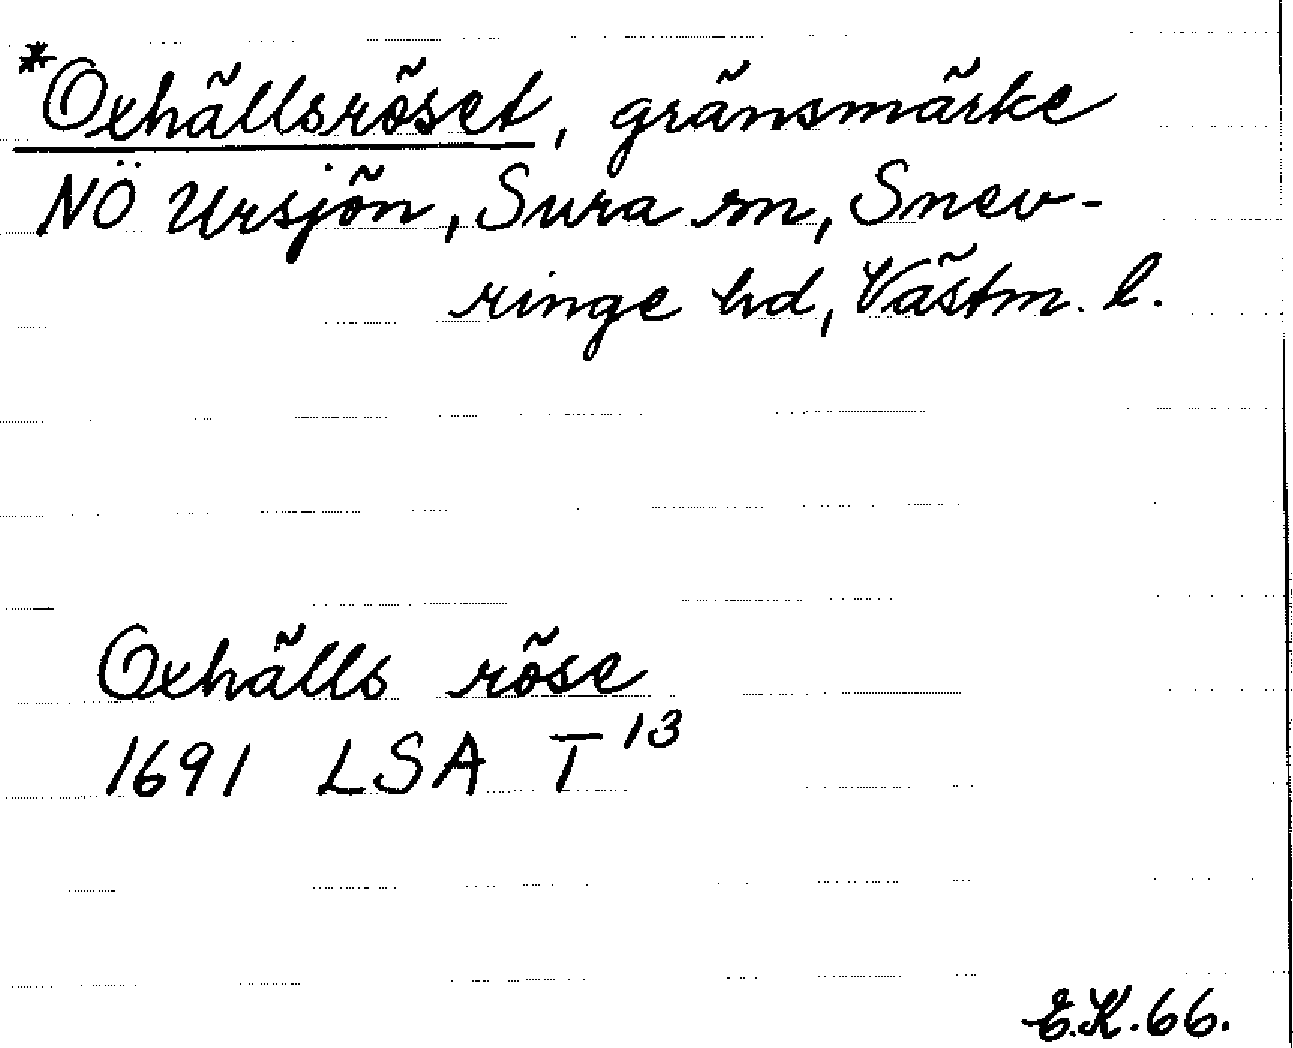 *Oxhällsröset, gränsmärke
NÖ Ursjön, Sura sn, Snev-
ringe hd, Västm. l.
Oxhälls röse
1691 LSA T 13
E.K. 66.